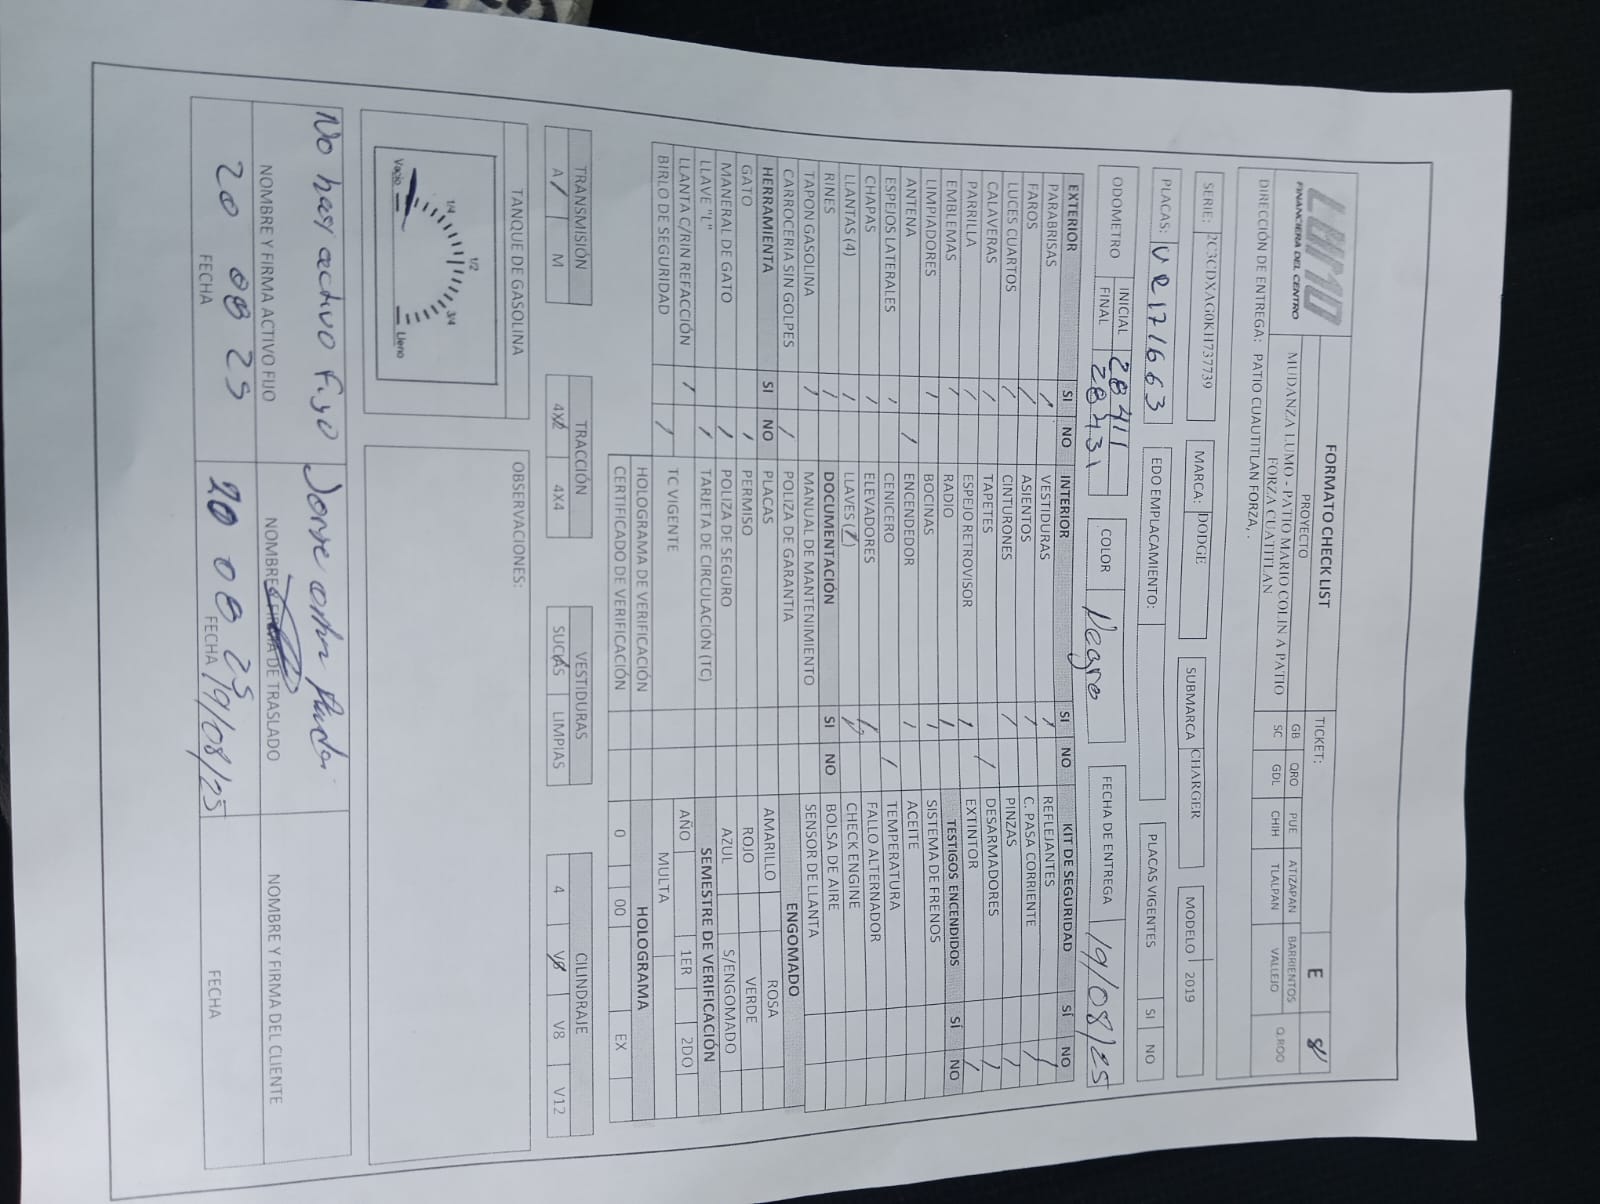 LUMO
FINANCIERA DEL CENTRO
FORMATO CHECK LIST
TICKET:
E
PROYECTO
MUDANZA LUMO - PATIO MARIO COLIN A PATIO
FORZA CUATITLAN
GB QRO PUE ATIZAPAN BARRIENTOS Q.ROO
SC GDL CHIH TLALPAN VALLEJO
DIRECCIÓN DE ENTREGA: PATIO CUAUTITLAN FORZA, .
SERIE: 2C3CDXAG0KH737739 MARCA: DODGE SUBMARCA CHARGER MODELO 2019
PLACAS: URI71663 EDO EMPLACAMIENTO: PLACAS VIGENTES SI NO
ODOMETRO INICIAL 28411 COLOR Negro FECHA DE ENTREGA 19/08/25
FINAL 28431
EXTERIOR SI NO INTERIOR SI NO KIT DE SEGURIDAD SÍ NO
PARABRISAS / VESTIDURAS / REFLEJANTES /
FAROS / ASIENTOS / C. PASA CORRIENTE /
LUCES CUARTOS / CINTURONES / PINZAS /
CALAVERAS / TAPETES / DESARMADORES /
PARRILLA / ESPEJO RETROVISOR / EXTINTOR /
EMBLEMAS / RADIO / TESTIGOS ENCENDIDOS SÍ NO
LIMPIADORES / BOCINAS / SISTEMA DE FRENOS
ANTENA / ENCENDEDOR / ACEITE
ESPEJOS LATERALES / CENICERO / TEMPERATURA
CHAPAS / ELEVADORES / FALLO ALTERNADOR
LLANTAS (4) / LLAVES ( ) / CHECK ENGINE
RINES / DOCUMENTACIÓN SI NO BOLSA DE AIRE
TAPON GASOLINA / MANUAL DE MANTENIMIENTO SENSOR DE LLANTA
CARROCERIA SIN GOLPES / POLIZA DE GARANTIA ENGOMADO
HERRAMIENTA SI NO PLACAS AMARILLO ROSA
GATO / PERMISO ROJO VERDE
MANERAL DE GATO / POLIZA DE SEGURO AZUL S/ENGOMADO
LLAVE "L" / TARJETA DE CIRCULACIÓN (TC) SEMESTRE DE VERIFICACIÓN
LLANTA C/RIN REFACCIÓN / TC VIGENTE AÑO 1ER 2DO
BIRLO DE SEGURIDAD / MULTA
HOLOGRAMA DE VERIFICACIÓN HOLOGRAMA
CERTIFICADO DE VERIFICACIÓN 0 00 EX
TRANSMISIÓN TRACCIÓN VESTIDURAS CILINDRAJE
A / M 4X2 4X4 SUCIAS LIMPIAS 4 V6 V8 V12
TANQUE DE GASOLINA OBSERVACIONES:
Vacio 1/4 1/2 3/4 Lleno
No hay activo fijo Jorge
NOMBRE Y FIRMA ACTIVO FIJO NOMBRE Y FIRMA DE TRASLADO NOMBRE Y FIRMA DEL CLIENTE
20 08 25 20 08 25 19/08/25
FECHA FECHA FECHA